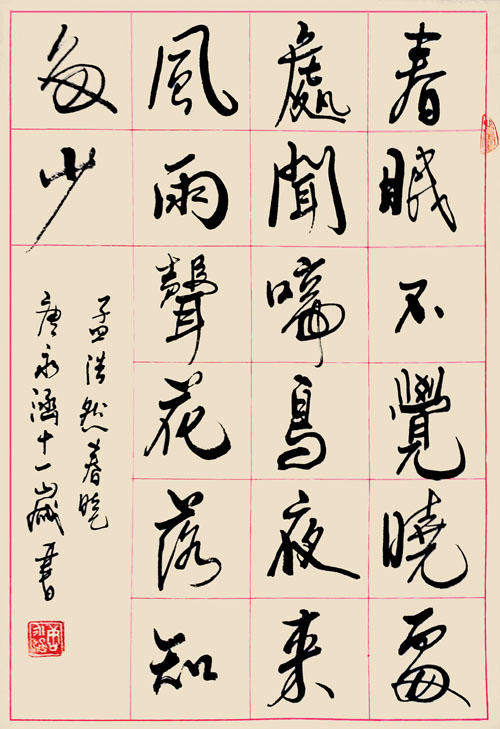 春眠不覺曉處
處聞啼鳥夜來
風雨聲花落知
多少
孟浩然春曉
唐永十一歲書